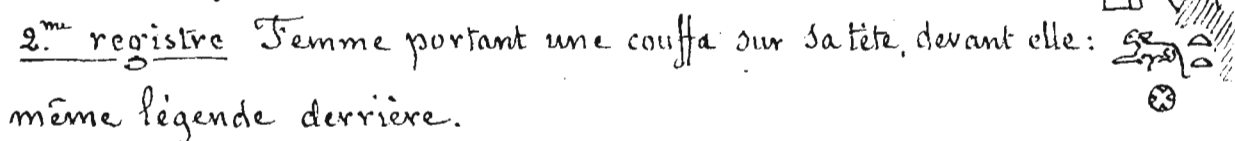 2.me registre Femme portant une couffa sur sa tête, devant elle:
même légende derrière.